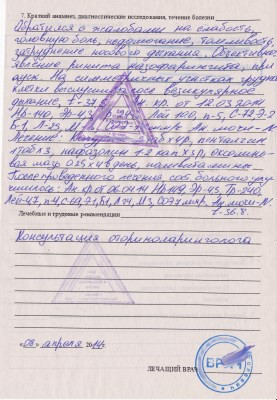 7. Краткий анамнез, диагностические исследования, течение болезни
Обратился с жалобами на слабость,
головную боль, недомогание, тошливость,
затруднение носового дыхания. Объективно:
явление ринита назофарингита, при
ауск. На симметричных участках грудной
клетки выслушивается везикулярное
дыхание, t-37, Ан. кр. от 12.03.2014
Нв-140, Эр-43, Лей 120, п-5, С-72, Э-2
Б-1, Ан. мочи-N
Лечение: х 4 р, пенталгин
1 таб х 3, нафазолин 1-2 кап х 3 р, оксолино-
вая мазь 0.25 х 4 в день, поливитамины
После проведенного лечения, сос. больного улу-
чшилось: Ан. кр. от 06.04.14 Нв-149, Эр-43, Тр-240,
Лей-47, п-4, Э-1, Б-1, М-3, СОЭ-7 мм/ч. Ан. мочи-N.
t-36.8.
Лечебные и трудовые рекомендации
Консультация оториноларинголога
«08» апреля 2014г.
ЛЕЧАЩИЙ ВРАЧ
ВРАЧ